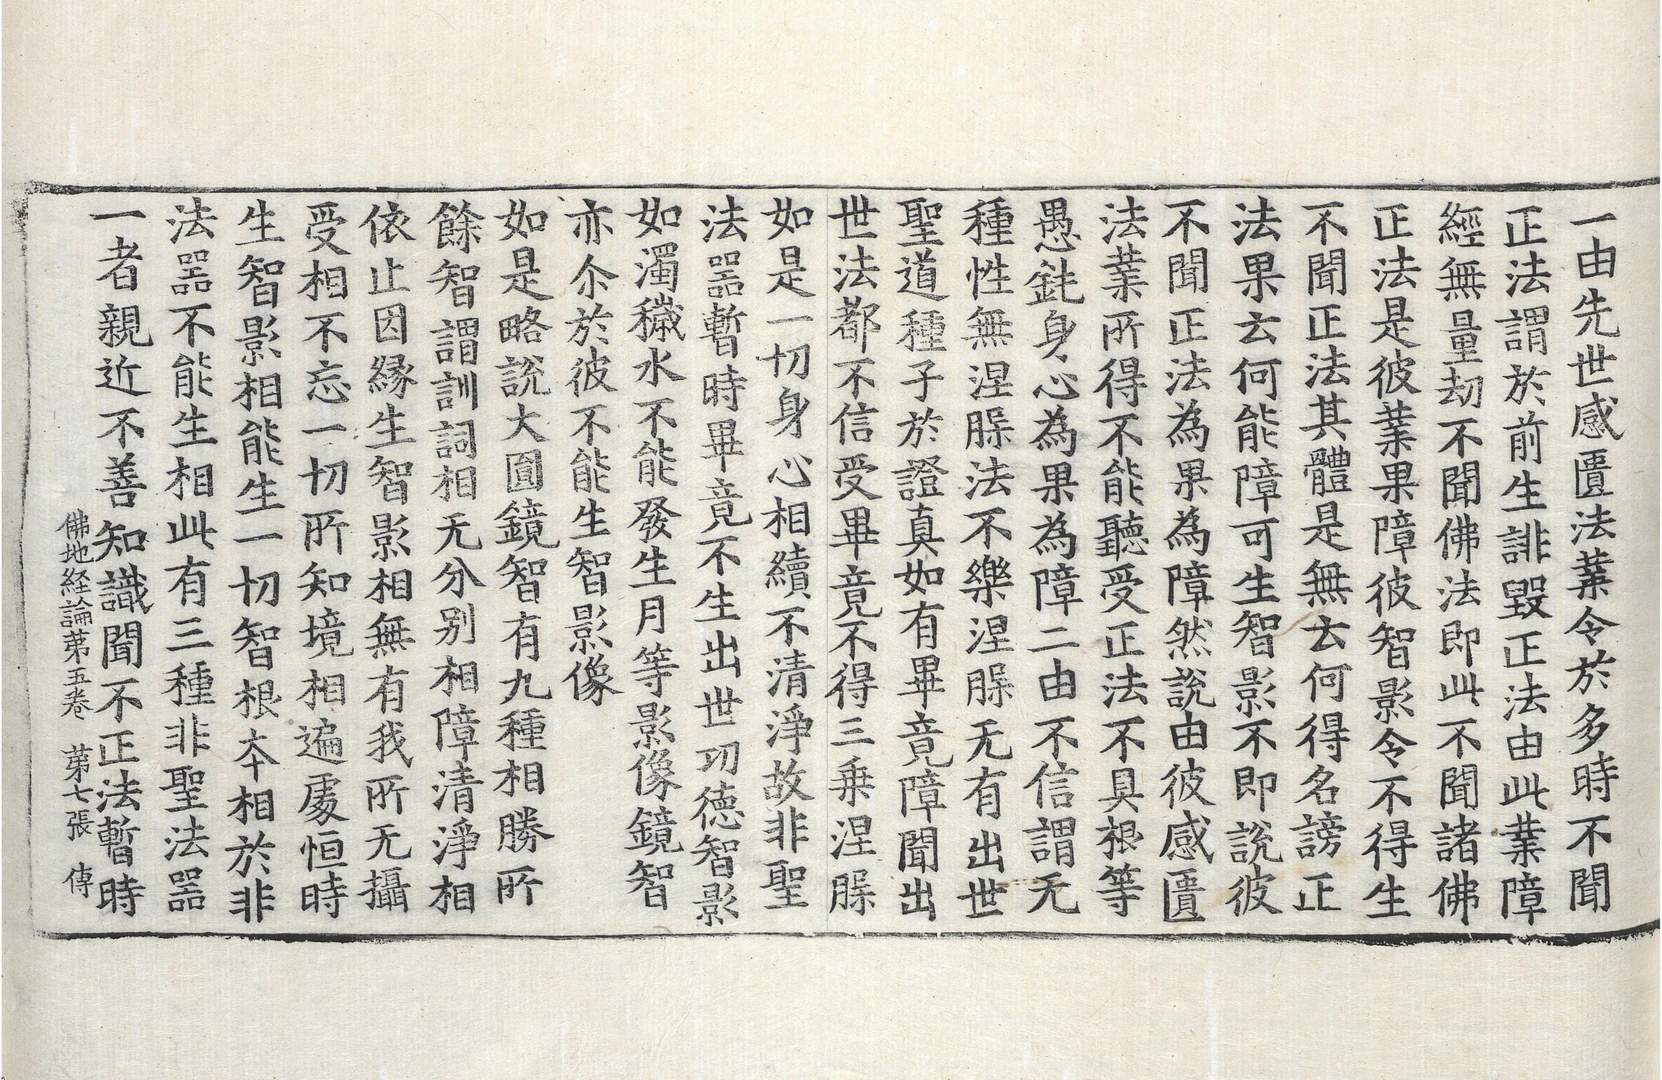 一由先世感匱法業令於多時不聞
正法謂於前生誹毀正法由此業障
經無量劫不聞佛法即此不聞諸佛
正法是彼業果障彼智影令不得生
不聞正法其體是無云何得名謗正
法果云何能障可生智影不即說彼
不聞正法為果為障然說由彼感匱
法業所得不能聽受正法不具根等
愚鈍身心為果為障二由不信謂无
種性無涅槃法不樂涅槃无有出世
聖道種子於證真如有畢竟障聞出
世法都不信受畢竟不得三乗涅槃
如是一切身心相續不清淨故非聖
法器暫時畢竟不生出世功德智影
如濁穢水不能發生月等影像鏡智
亦尒於彼不能生智影像
如是略說大圓鏡智有九種相勝所
餘智謂訓詞相无分別相障清淨相
依止因緣生智影相無有我所无攝
受相不忘一切所知境相遍處恒時
生智影相能生一切智根本相於非
法器不能生相此有三種非聖法器
一者親近不善知識聞不正法暫時
佛地経論苐五卷　苐七張　傳